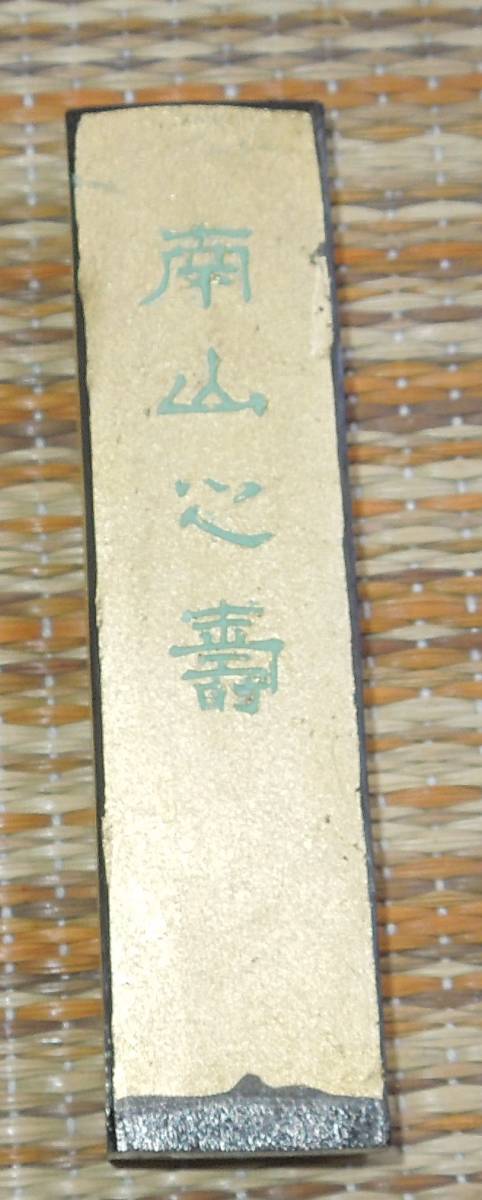 南山之壽